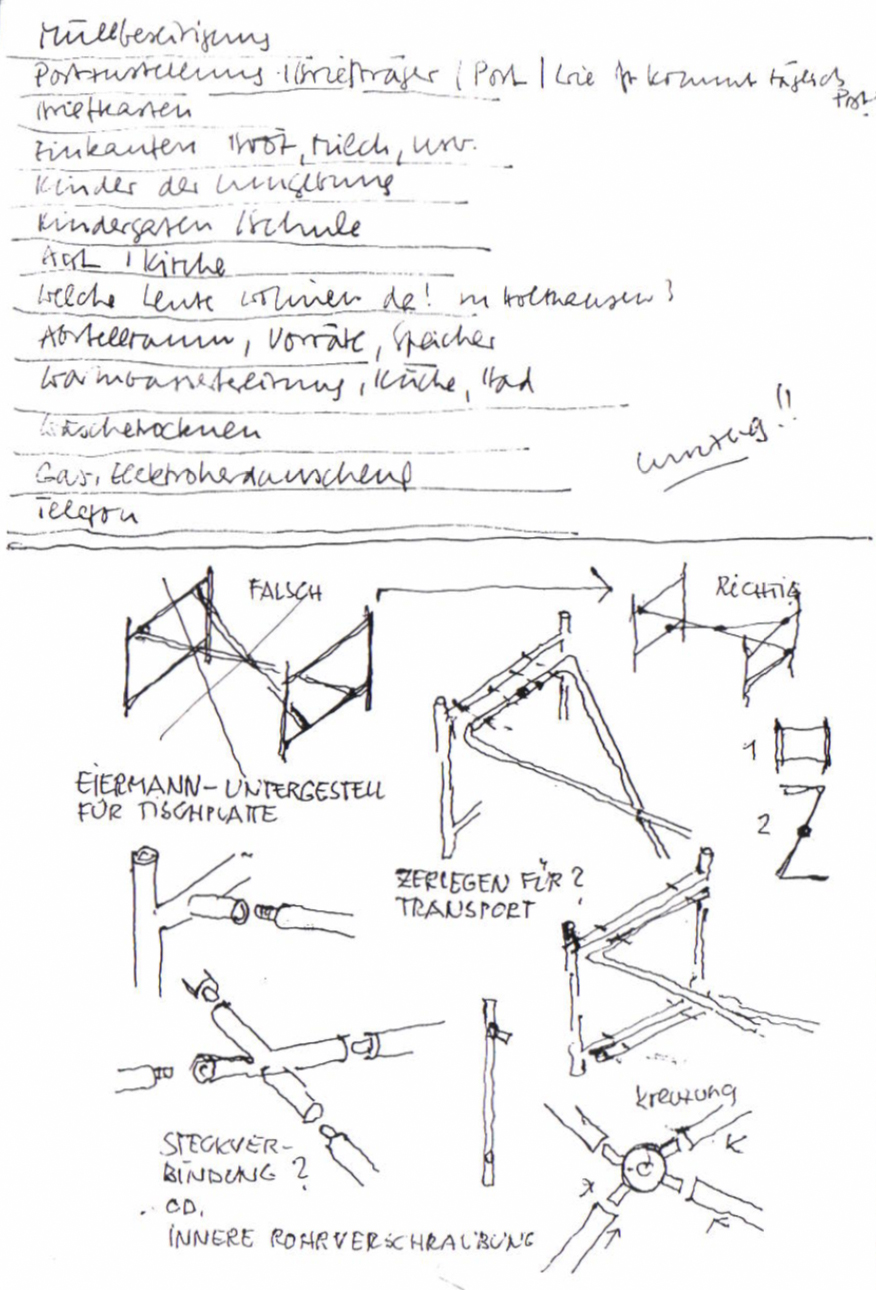 Müllbeseitigung
Postzustellung / Briefträger / Post / wie oft kommt täglich Post?
Briefkasten
Einkaufen Brot, Milch, usw.
Kinder der Umgebung
Kindergarten / Schule
Arzt / Kirche
Welche Leute wohnen da! in Holthausen?
Abstellraum, Vorräte, Speicher
Warmwasserbereitung, Küche, Bad
Wäschetrocknen
Umzug!!
Gas, Elektroherdanschluß
Telefon
FALSCH
RICHTIG
1
EIERMANN-UNTERGESTELL
FÜR TISCHPLATTE
2
ZERLEGEN FÜR ?
TRANSPORT
Kreuzung
STECKVER-
BINDUNG ?
OD.
INNERE ROHRVERSCHRAUBUNG